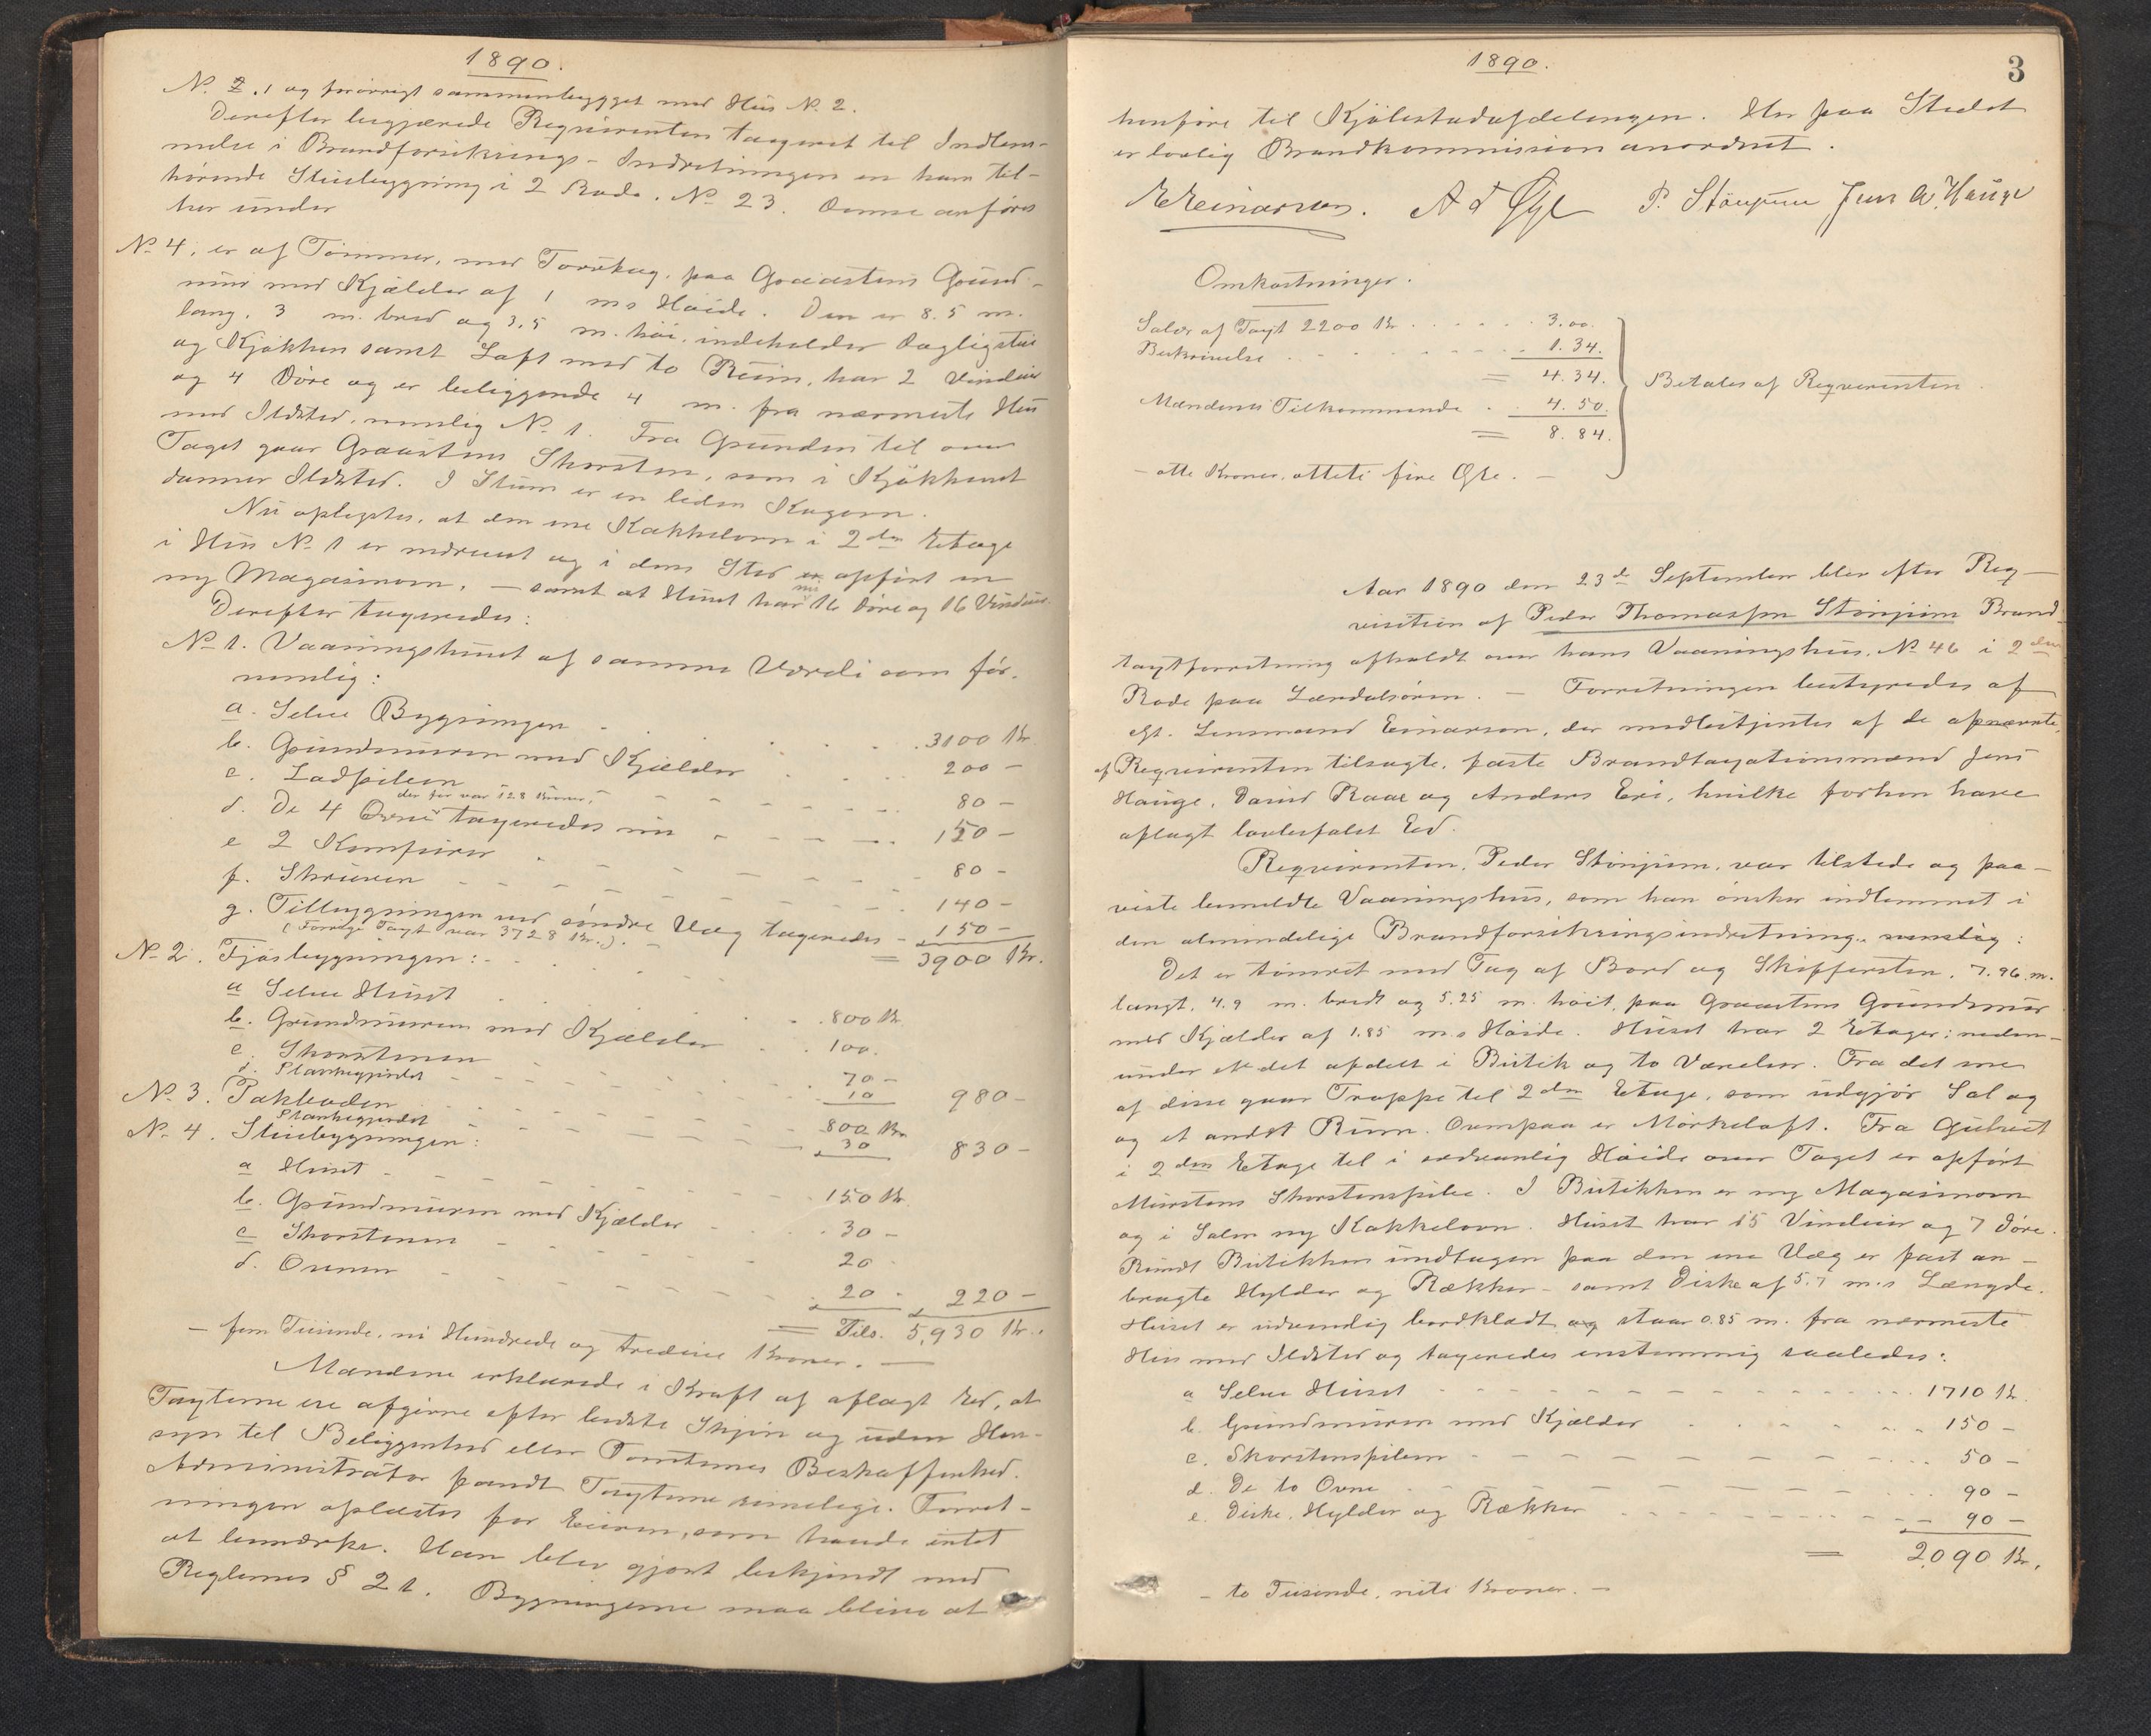 1890.
N. 2. 1 og forøvrigt sammenbygget med Hus N. 2.
Derefter begjærede Reqvirenten taxeret til Indlem-
melse i Brandforsikrings-Indretningen en ham til-
hørende Stuebygning i 2 Rode. No 23. Denne anføres
her under
No 4, er af Tømmer, med Torvtag, paa Graastens Grund-
mur med Kjælder af 1 m.s Høide. Den er 8.5 m.
lang, 3 m. bred og 3,5 m. høi, indeholder Dagligstue
og Kjøkken samt Loft med to Rum, har 2 Vinduer
og 4 Døre og er beliggende 4 m. fra nærmeste Hus
med Ildsted, nemlig No 1. Fra Grunden til over
Taget gaar Graastens Skorsten, som i Kjøkkenet
danner Ildsted. I Stuen er en liden Kogeovn.
Nu oplystes, at den ene Kakkelovn i 2den Etage
i Hus No 1 er nedrevet og i dens Sted er opført en
ny Magasinovn, – samt at Huset har nu 16 Døre og 16 Vinduer.
Derefter taxeredes:
No 1. Vaaningshuset af samme Værdi som før,
nemlig:
a. Selve Bygningen . . . . 3100 Kr
b. Grundmuren med Kjælder . . . 200 –
c. Ladpiben – – – 80 –
der før var 128 Kroner,
d. De 4 Ovne taxeredes nu – – – 150 –
e 2 Komfurer – – – 80 –
f. Skruven – – – 140 –
g. Tilbygningen ved søndre Væg taxeredes – 150 –
(Forrige Taxt var 3728 Kr.). – = 3900 Kr.
No 2. Fjøsbygningen: –
a Selve Huset . . . 800 Kr
b. Grundmuren med Kjælder . . 100.
c. Skorstenen – – 70 –
d. Plankegjerdet – – 10 980 –
No 3. Takladen – – 800 Kr
Plankegjerdet – – 30 830 –
No 4. Stuebygningen:
a Huset – – – 150 Kr
b. Grundmuren med Kjælder – . 30 –
c Skorstenen – – 20 –
d. Ovnen – – – 20 – 220 –
= Tils. 5,930 Kr.
– fem Tusinde, ni Hundrede og tredive Kroner. –
Mændene erklærede i Kraft af aflagt Ed, at
Taxterne ere afgivne efter bedste Skjøn og uden Hen-
syn til Beliggenhed eller Tomternes Beskaffenhed.
Administrator fandt Taxterne rimelige. Forret-
ningen oplæstes for Eieren, som havde intet
at bemærke. Han blev gjort bekjendt med
Reglernes § 21. Bygningerne maa blive at
1890.
3
henføre til Kjøbstadafdelingen. Her paa Stedet
er lovlig Brandkommission anordnet.
E Einarsen. A d Øye P. Stönjum Jens A. Hauge
Omkostninger.
Salær af Taxt 2200 Kr . . . . . 3.00.
Beskrivelse . . . . 1.34.
= 4.34.
Mændenes Tilkommende . . 4.50.
= 8.84.
Betales af Reqvirenten.
– otte Kroner, otteti fire Øre. –
Aar 1890 den 23de September blev efter Req-
visition af Peder Thomassen Stönjum Brand-
taxtforretning afholdt over hans Vaaningshus, No 46 i 2den
Rode paa Lærdalsøren. – Forretningen bestyredes af
cst. Lensmand Einarson, der medbetjentes af de opnævnte,
af Reqvirenten tilsagte, faste Brandtaxationsmænd Jens
Hauge, David Raae og Anders Eri, hvilke forhen have
aflagt lovbefalet Ed.
Reqvirenten, Peder Stönjum, var tilstede og paa-
viste bemeldte Vaaningshus, som han ønsker indlemmet i
den almindelige Brandforsikringsindretning. nemlig:
Det er tømret med Tag af Bord og Skifersten, 7.96 m.
langt, 4.9 m. bredt og 5.25 m. høit, paa Graastens Grundmur
med Kjælder af 1.85 m.s Høide. Huset har 2 Etager; neden-
under er det afdelt i Butik og to Værelser. Fra det ene
af disse gaar Trappe til 2den Etage, som udgjør Sal og
og et andet Rum. Ovenpaa er Mørkeloft. Fra Gulvet
i 2den Etage til i sædvanlig Høide over Taget er opført
Murstens Skorstenspibe. I Butikken er ny Magasinovn
og i Salen ny Kakkelovn. Huset har 15 Vinduer og 7 Døre.
Rundt Butikken undtagen paa den ene Væg er fast an-
bragte Hylder og Rækker – samt Diske af 5.7 m.s Længde.
Huset er udvendig bordklædt og staar 0.85 m. fra nærmeste
Hus med Ildsted og taxeredes enstemmig saaledes:
a Selve Huset – – – 1710 Kr.
b. Grundmuren med Kjælder . . . 150 –
c. Skorstenspiben – – – 50 –
d. De to Ovne – – – 90 –
e. Diske, Hylder og Rækker . . . 90 –
= 2090 Kr.
– to Tusinde, niti Kroner. –